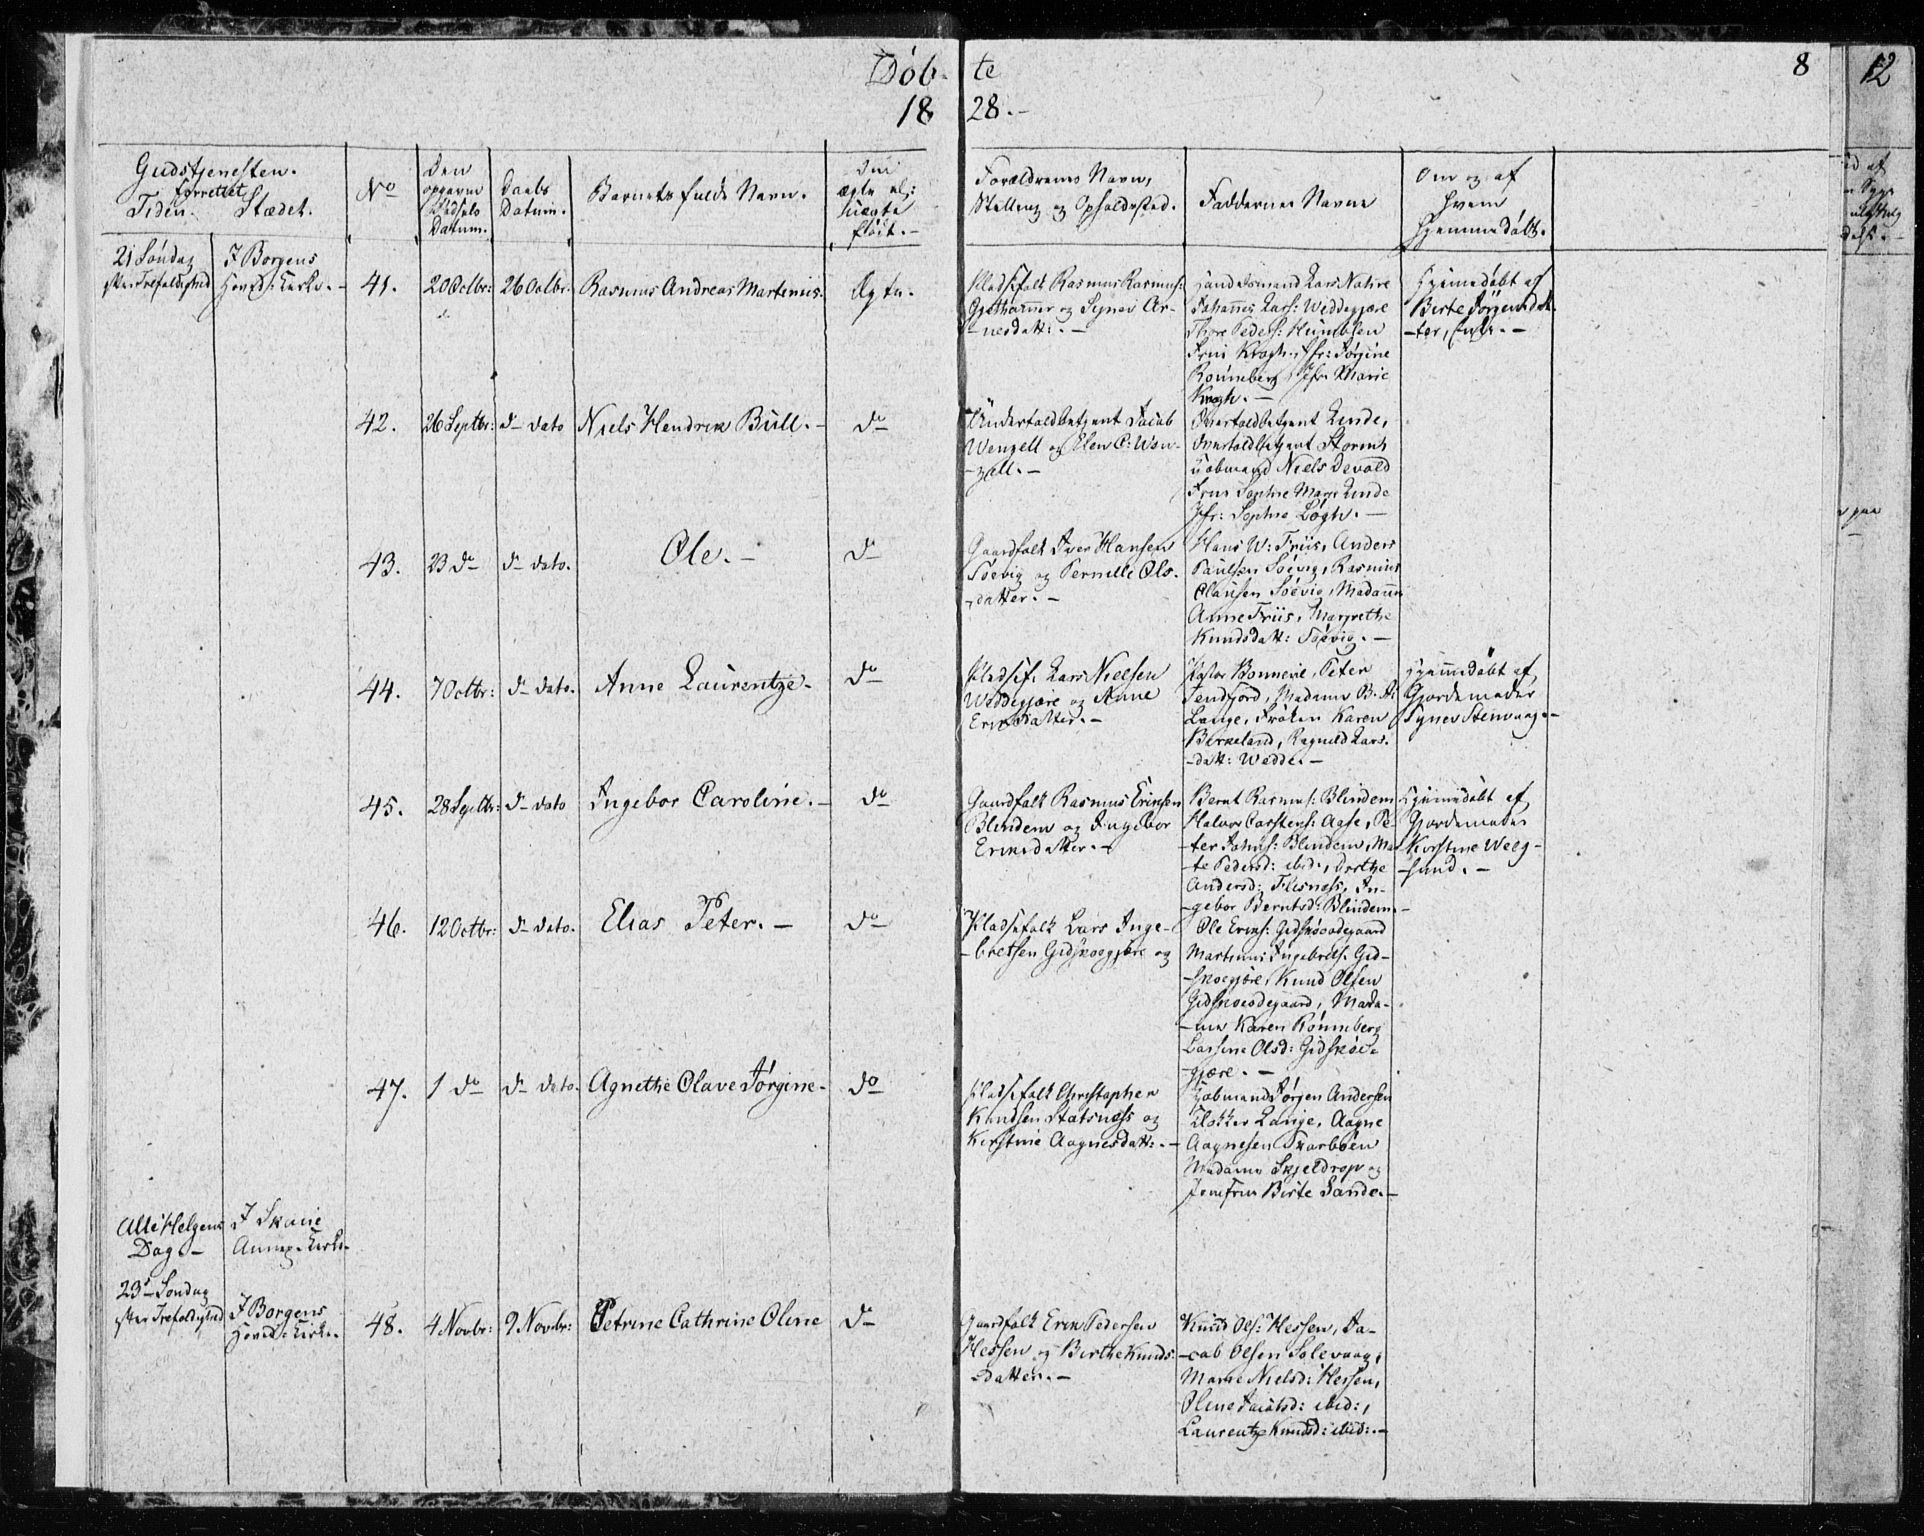 Døb- te
8
12
18 28.-
Gudstjenesten.
forrettet
Tiden. Stædet.
No
Den
opgivne
Fødsels
Datum.
Daabs
Datum.
Barnets fulde Navn.
ægte el:
uægte
født.-
Forældrenes Navn,
Stilling og Opholdssted.
Faddernes Navne
Om og af
hvem
hjemmedøbt.
21 Søndag
efter Trefoldighed
I Borgens
Hoved-Kirke.-
41. 20 Octbr: 26 Octbr. Rasmus Andreas Martinius. Ægte.
Pladsefolk Rasmus Rasmus:
og Synev Ar-
-nesdatt:.-
Lars
Johannes Lars: Weddegjære
Thore Peders: Humblen
Frue Krogh. Jfr: Jørgine
Rønneberg, Jfr. Marie
Krogh.-
Hjemmedøbt af
Birte Jørgensdat-
-ter,
42. 26 Septbr: d- dato Niels Hendrik Bull.- do
Undertoldbetjent Jacob
Wenzell og Elen C: Wen-
-zell.-
Overtoldbetjent Linde,
Overtoldbetjent Storm
Kobmand Niels Devold
Frue Sophie Marie Linde
Jfr: Sophie Løgh.-
43. 23 do d- dato. Ole.- do
Gaardfolk Iver Hansen
Soevig og Pernille Ols-
-datter.-
Hans W: Friis, Anders
Paulsen Soevig, Rasmus
Clausen Soevig, Madame
Anne Friis, Margrethe
Knudsdatt: Soevig.-
44. 7 Octbr: d- dato. Anne Laurentze. do
Pladsef. Lars Nielsen
Weddegjære og Anne
Eriksdatter.-
Bonnevie, Peter
Tendfjord, Madame B. A:
Lange, Frøken Karen
Birkeland, Ragnild Lars-
-datt: Wedde.-
Hjemmedøbt af
Gjordemoder
Synev Steinvaag.-
45. 28 Septbr: d- dato Ingebor Caroline.- do
Gaardfolk Rasmus Eriksen
Blindem og Ingebor
Eriksdatter.-
Bernt Rasmus: Blindem
Halvor Carstens: Aase, Pe-
-ter Johns: Blindem, Mar-
-te Pedersd: ibid:, Dorthe
Andersd: Flisnæss, In-
-gebor Berntsd: Blindem.-
Hjemmedøbt af
Gjordemoder
Kirstine Weeg-
-sund.-
46. 12 Octbr: d- dato. Elias Peter.- do
Pladsefolk Lars Inge-
-bretsen Gidskoegjære og
Ole Eriks: Gidskoeodegaard
Martinus Ingebrets: Gid-
-skoegjære, Knud Olsen
Gidskoeodegaard, Mada-
-me Karen Rønneberg
Larsine Olsd: Gidskoe-
-gjære.-
47. 1 do d- dato. Agnethe Olave Jørgine. do
Pladsefolk Christopher
Knudsen Slatsnæss og
Kirstine Aagnesdatt:.-
Kobmand Jørgen Andersen
Klokker Lange, Aagne
Aagnesen Skarbøen
Madame Skjeldrop og
Jomfrue Birte Sande.-
Alle Helgens
Dag.-
I Skouie
Annex-Kirke.
23de Søndag
efter Trefoldighed
I Borgens
Hoved-Kirke.
48. 4 Novbr: 9 Novbr: Petrine Cathrine Oline do
Gaardfolk Erik Pedersen
Hessen og Birthe Knuds-
-datter.-
Knud Ols: Hessen, Ja-
-cob Olsen Solevaag,
Marie Nielsd: Hessen,
Oline Jacobsd: ibid:,
Laurentze Knudsd: ibid:.-